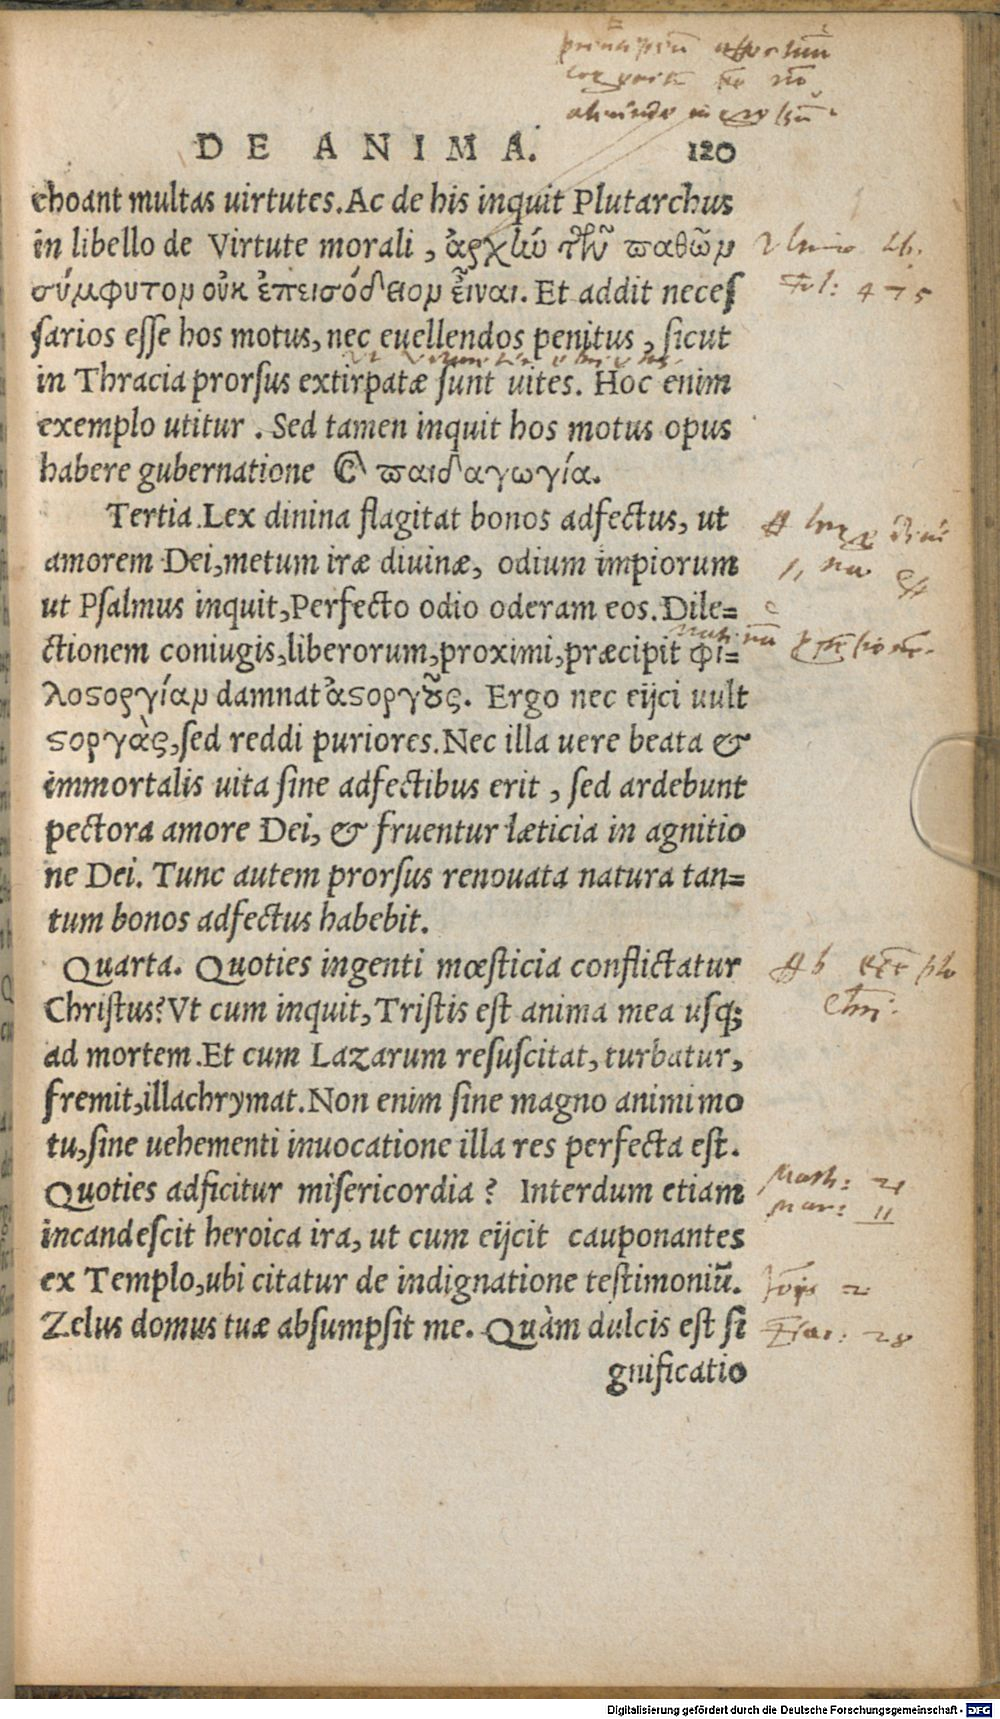 DE ANIMA. 120
choant multas uirtutes. Ac de his inquit Plutarchus
in libello de Virtute morali, ἀρχὴν τῶν παθῶν
σύμφυτον οὐκ ἐπεισόδειον εἶναι. Et addit neceſ
ſarios eſſe hos motus, nec euellendos penitus, ſicut
in Thracia prorſus extirpatæ ſunt uites. Hoc enim
exemplo utitur. Sed tamen inquit hos motus opus
habere gubernatione & παιδαγωγία.
Tertia. Lex dinina flagitat bonos adfectus, ut
amorem Dei, metum iræ diuinæ, odium impiorum
ut Pſalmus inquit, Perfecto odio oderam eos. Dile=
ctionem coniugis, liberorum, proximi, præcipit φι=
λοςοργίαν damnat ἀςοργους. Ergo nec eijci uult
ςοργὰς, ſed reddi puriores. Nec illa uere beata &
immortalis uita ſine adfectibus erit, ſed ardebunt
pectora amore Dei, & fruentur læticia in agnitio
ne Dei. Tunc autem prorſus renouata natura tan=
tum bonos adfectus habebit.
Quarta. Quoties ingenti mœſticia conflictatur
Chriſtus? Vt cum inquit, Triſtis eſt anima mea uſq;
ad mortem. Et cum Lazarum reſuſcitat, turbatur,
fremit, illachrymat. Non enim ſine magno animi mo
tu, ſine uehementi inuocatione illa res perfecta eſt.
Quoties adficitur miſericordia? Interdum etiam
incandeſcit heroica ira, ut cum eijcit cauponantes
ex Templo, ubi citatur de indignatione teſtimoniũ.
Zelus domus tuæ abſumpſit me. Quàm dulcis eſt ſi
gnificatio
Fol: 475
Math: 21
Mar: 11
Digitalisierung gefördert durch die Deutsche Forschungsgemeinschaft - DFG